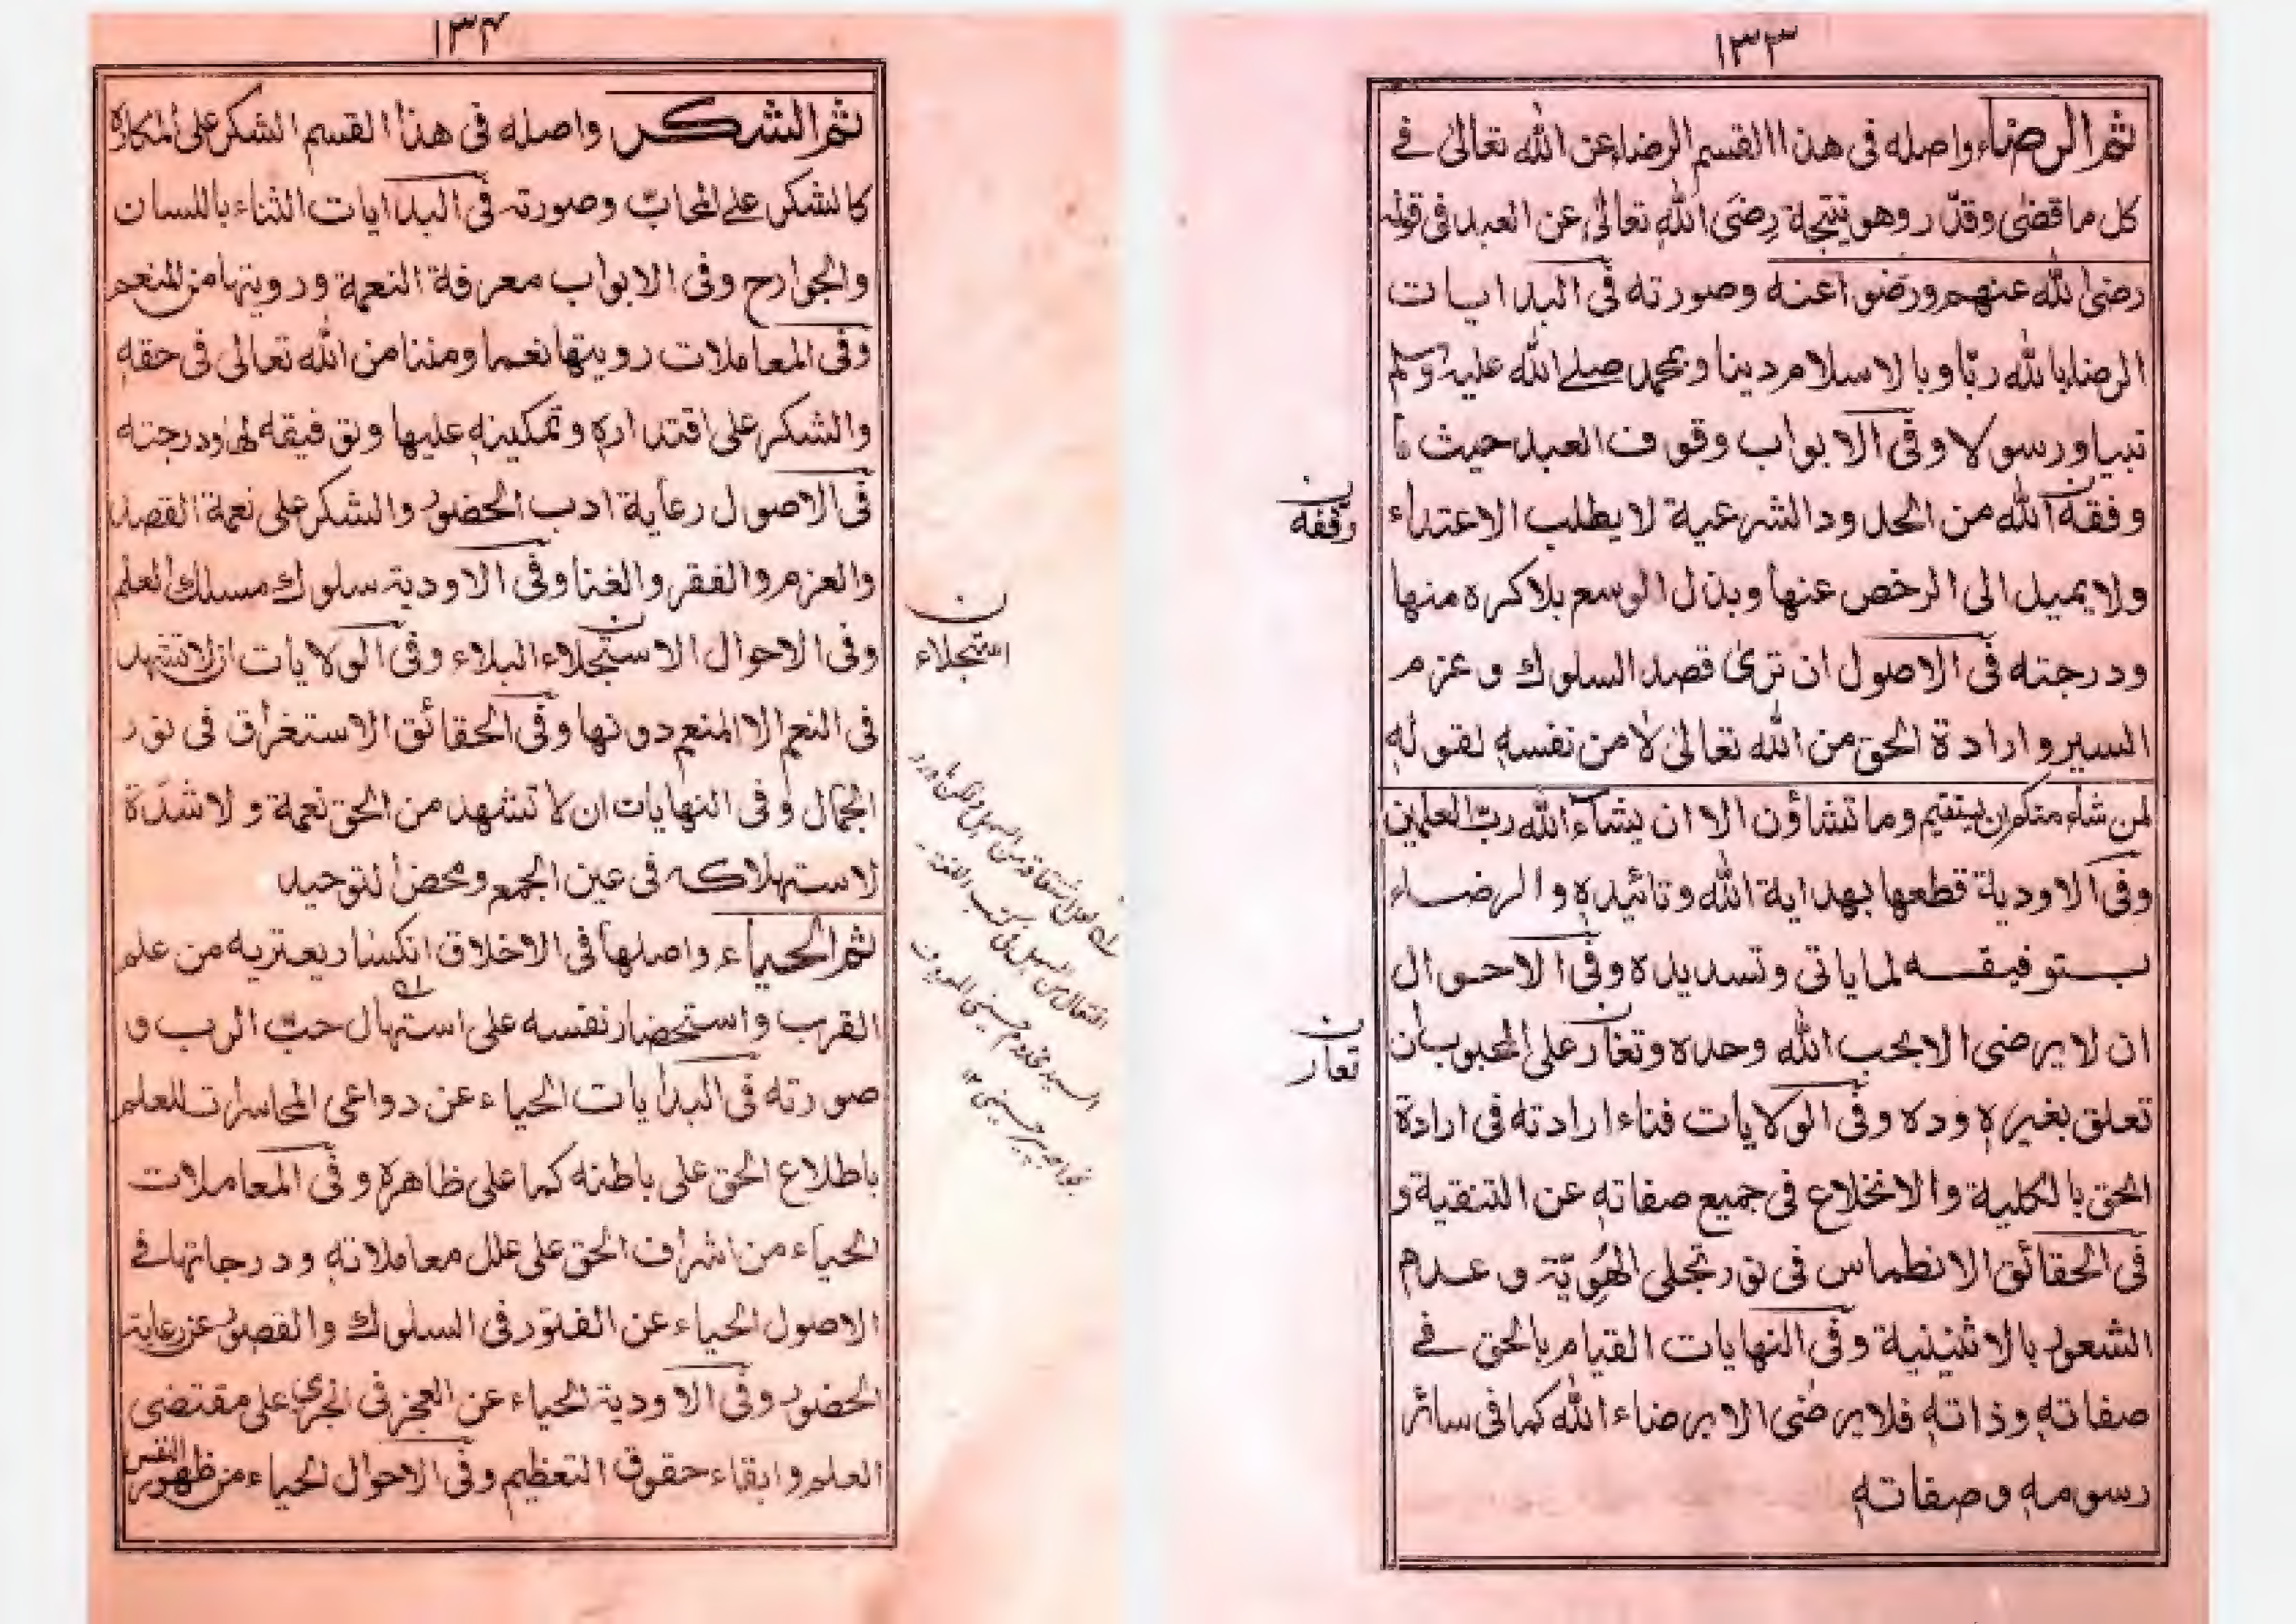 ١٣٣
ثم الرضاء واصله فى هذا القسم الرضاء عن الله تعالىٰ فے
كل ما قضىٰ وقدّر وهو نتيجة رضَى الله تعالىٰ عن العبد فى قوله
رضى الله عنهم ورضوا عنه وصورته فى البدايات
الرضا بالله ربّا وبالاسلام دينا وبمحمد صلے الله عليه وسلم
نبيا ورسولا وفى الابواب وقوف العبد حيث ما
وفقه الله من الحدود الشرعية لا يطلب الاعتداء
وقفه
ولا يميل الى الرخص عنها وبذل الوسع بلا كره منها
ودرجته فى الاصول ان ترىٰ قصد السلوك وعزم
السير وارادة الحق من الله تعالىٰ لا من نفسهٖ لقولهٖ
لمن شاء منكم ان يستقيم وما تشاؤن الا ان يشآء الله ربّ العلمين
وفى الاودية قطعها بهداية الله وتائيدهٖ والرضاء
بتوفيقه لما ياتى وتسديده وفى الاحوال
ان لا يرضى الا بحب الله وحده وتغار على المحبوب ان
تعار
تعلق بغيرهٖ وده وفى الولايات فناء ارادته فى ارادة
الحق بالكلية والانخلاع فى جميع صفاتهٖ عن التنقية و
فى الحقائق الانطماس فى نور تجلى الهُوِيّة وعدم
الشعور بالاثنينية وفى النهايات القيام بالحق فے
صفاتهٖ وذاتهٖ فلا يرضٰى الا برضاء الله كما فى سائر
رسومهٖ وصفاتهٖ
١٣٤
ثم الشكر واصله فى هذا القسم الشكر على المكاره
كالشكر علے المحابّ وصورته فى البدايات الثناء باللسان
والجوارح وفى الابواب معرفة النعمة ورويتها من المنعم
وفى المعاملات رويتها نعما ومننا من الله تعالى فى حقهٖ
والشكر على اقتدارهٖ وتمكينهٖ عليها وتوفيقه لها ودرجته
فى الاصول رعاية ادب الحضور والشكر على نعمة القصد
والعزم والفقر والغنا وفى الاودية سلوك مسلك العلم
وفى الاحوال الاستجلاء البلاء وفى الولايات ان لا تشهد
استجلاء
فى النعم الا المنعم دونها وفى الحقائق الاستغراق فى نور
الجمال وفى النهايات ان لا تشهد من الحق نعمة ولا شدّة
لاستهلاكه فى عين الجمع ومحض التوحيد
ثم الحياء واصلها فى الاخلاق انكسار يعتريه من علم
القرب واستحضار نفسه على استهال حبّ الرب و
صورته فى البدايات الحياء عن دواعى المخاسرات للعلم
باطلاع الحق على باطنه كما على ظاهرهٖ وفى المعاملات
الحياء من اشراف الحق على علل معاملاتهٖ ودرجاتها فے
الاصول الحياء عن الفتور فى السلوك والقصور عن رعاية
الحضور وفى الاودية الحياء عن العجز فى الجرى على مقتضى
العلم وابقاء حقوق التعظيم وفى الاحوال الحياء من ظهور النفس
السيد مخدوم حسينى المعروف
بخواجه پير حسينى ١٢